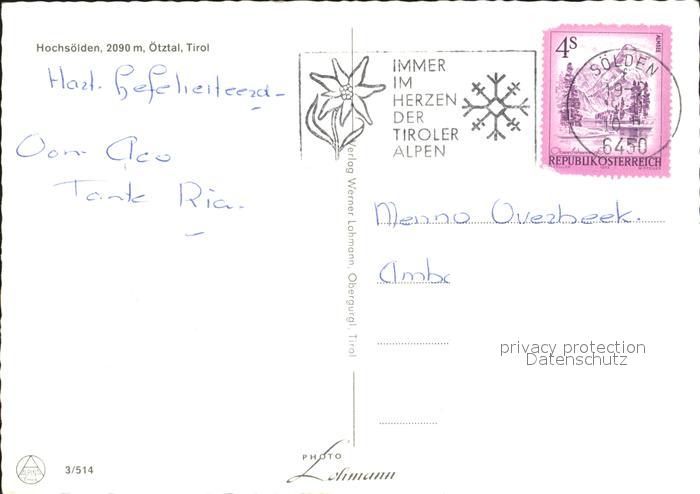 Hochsölden, 2090 m, Ötztal, Tirol
Hart. Gefeliciteerd-
Oom Aco
Tante Ria.
IMMER
IM
HERZEN
DER
TIROLER
ALPEN
4S
ALMSEE
SÖLDEN
6450
REPUBLIK ÖSTERREICH
Verlag Werner Lohmann, Obergurgl, Tirol
Menno Overbeek.
Amb
privacy protection
Datenschutz
3/514
PHOTO
Lohmann